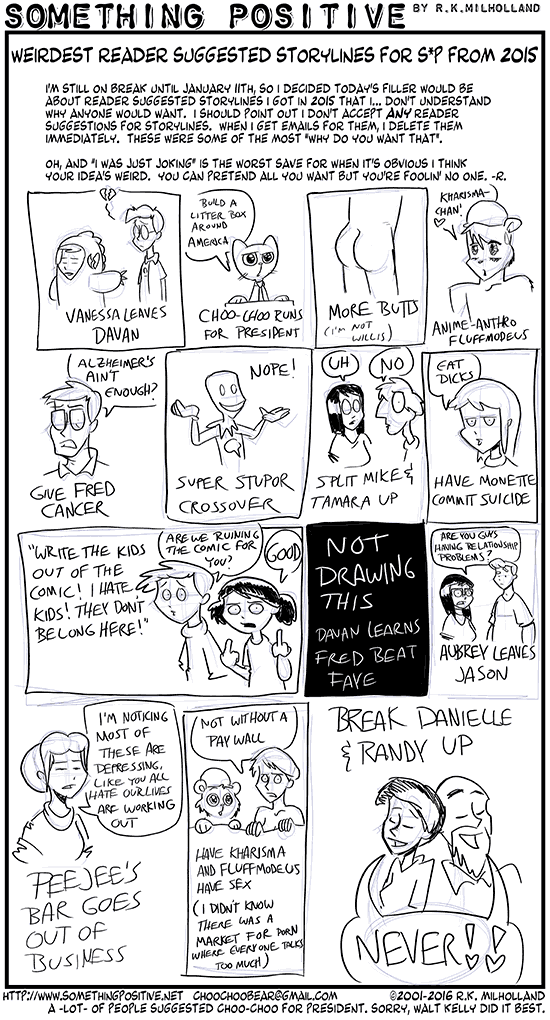 SOMETHING POSITIVE BY R.K.MILHOLLAND
WEIRDEST READER SUGGESTED STORYLINES FOR S*P FROM 2015
I'M STILL ON BREAK UNTIL JANUARY 11TH, SO I DECIDED TODAY'S FILLER WOULD
BE ABOUT READER SUGGESTED STORYLINES I GOT IN 2015 THAT I... DON'T UNDERSTAND
WHY ANYONE WOULD WANT. I SHOULD POINT OUT I DON'T ACCEPT ANY READER
SUGGESTIONS FOR STORYLINES. WHEN I GET EMAILS FOR THEM, I DELETE THEM
IMMEDIATELY. THESE WERE SOME OF THE MOST "WHY DO YOU WANT THAT".
OH, AND "I WAS JUST JOKING" IS THE WORST SAVE FOR WHEN IT'S OBVIOUS I THINK
YOUR IDEA'S WEIRD. YOU CAN PRETEND ALL YOU WANT BUT YOU'RE FOOLIN' NO ONE. -R.
VANESSA LEAVES
DAVAN
BUILD A
LITTER BOX
AROUND
AMERICA
CHOO-CHOO RUNS
FOR PRESIDENT
MORE BUTTS
(I'M NOT
WILLIS)
KHARISMA-
CHAN!
ANIME-ANTHRO
FLUFFMODEUS
ALZHEIMER'S
AIN'T
ENOUGH?
GIVE FRED
CANCER
NOPE!
SUPER STUPOR
CROSSOVER
UH
NO
SPLIT MIKE &
TAMARA UP
EAT
DICKS
HAVE MONETTE
COMMIT SUICIDE
"WRITE THE KIDS
OUT OF THE
COMIC! I HATE
KIDS! THEY DON'T
BELONG HERE!"
ARE WE RUINING
THE COMIC FOR
YOU?
GOOD
NOT
DRAWING
THIS
DAVAN LEARNS
FRED BEAT
FAYE
ARE YOU GUYS
HAVING RELATIONSHIP
PROBLEMS?
AUBREY LEAVES
JASON
I'M NOTICING
MOST OF
THESE ARE
DEPRESSING.
LIKE YOU ALL
HATE OUR LIVES
ARE WORKING
OUT
PEEJEE'S
BAR GOES
OUT OF
BUSINESS
NOT WITHOUT A
PAY WALL
HAVE KHARISMA
AND FLUFFMODEUS
HAVE SEX
(I DIDN'T KNOW
THERE WAS A
MARKET FOR PORN
WHERE EVERYONE TALKS
TOO MUCH)
BREAK DANIELLE
& RANDY UP
NEVER!!
HTTP://WWW.SOMETHINGPOSITIVE.NET CHOOCHOOBEAR@GMAIL.COM ©2001-2016 R.K. MILHOLLAND
A -LOT- OF PEOPLE SUGGESTED CHOO-CHOO FOR PRESIDENT. SORRY, WALT KELLY DID IT BEST.